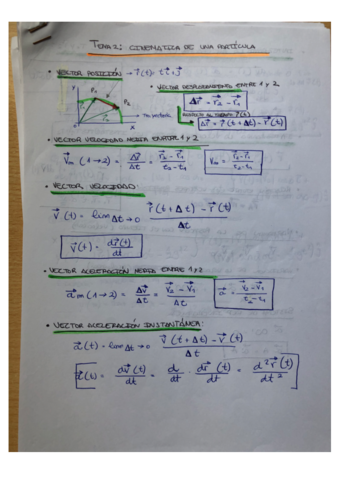 TEMA 2: CINEMÁTICA DE UNA PARTÍCULA
• VECTOR POSICIÓN → r⃗(t) =
• VECTOR DESPLAZAMIENTO ENTRE 1 y 2
Δr⃗ = r⃗₂ - r⃗₁
RESPECTO AL TIEMPO r⃗(t)
Δr⃗ = r⃗(t+Δt) - r⃗(t)
• VECTOR VELOCIDAD MEDIA ENTRE 1 y 2
V⃗m (1→2) = Δr⃗/Δt = (r⃗₂ - r⃗₁)/(t₂ - t₁)
Vm = (r⃗₂ - r⃗₁)/(t₂ - t₁)
• VECTOR VELOCIDAD:
V⃗(t) = lim Δt→0 (r⃗(t+Δt) - r⃗(t))/Δt
V⃗(t) = dr⃗(t)/dt
• VECTOR ACELERACIÓN MEDIA ENTRE 1 y 2
a⃗m (1→2) = ΔV⃗/Δt = (V⃗₂ - V⃗₁)/(t₂ - t₁)
a⃗ = (V⃗₂ - V⃗₁)/(t₂ - t₁)
• VECTOR ACELERACIÓN INSTANTÁNEA:
a⃗(t) = lim Δt→0 (V⃗(t+Δt) - V⃗(t))/Δt
a⃗(t) = dv⃗(t)/dt = d/dt · dr⃗(t)/dt = d²r⃗(t)/dt²